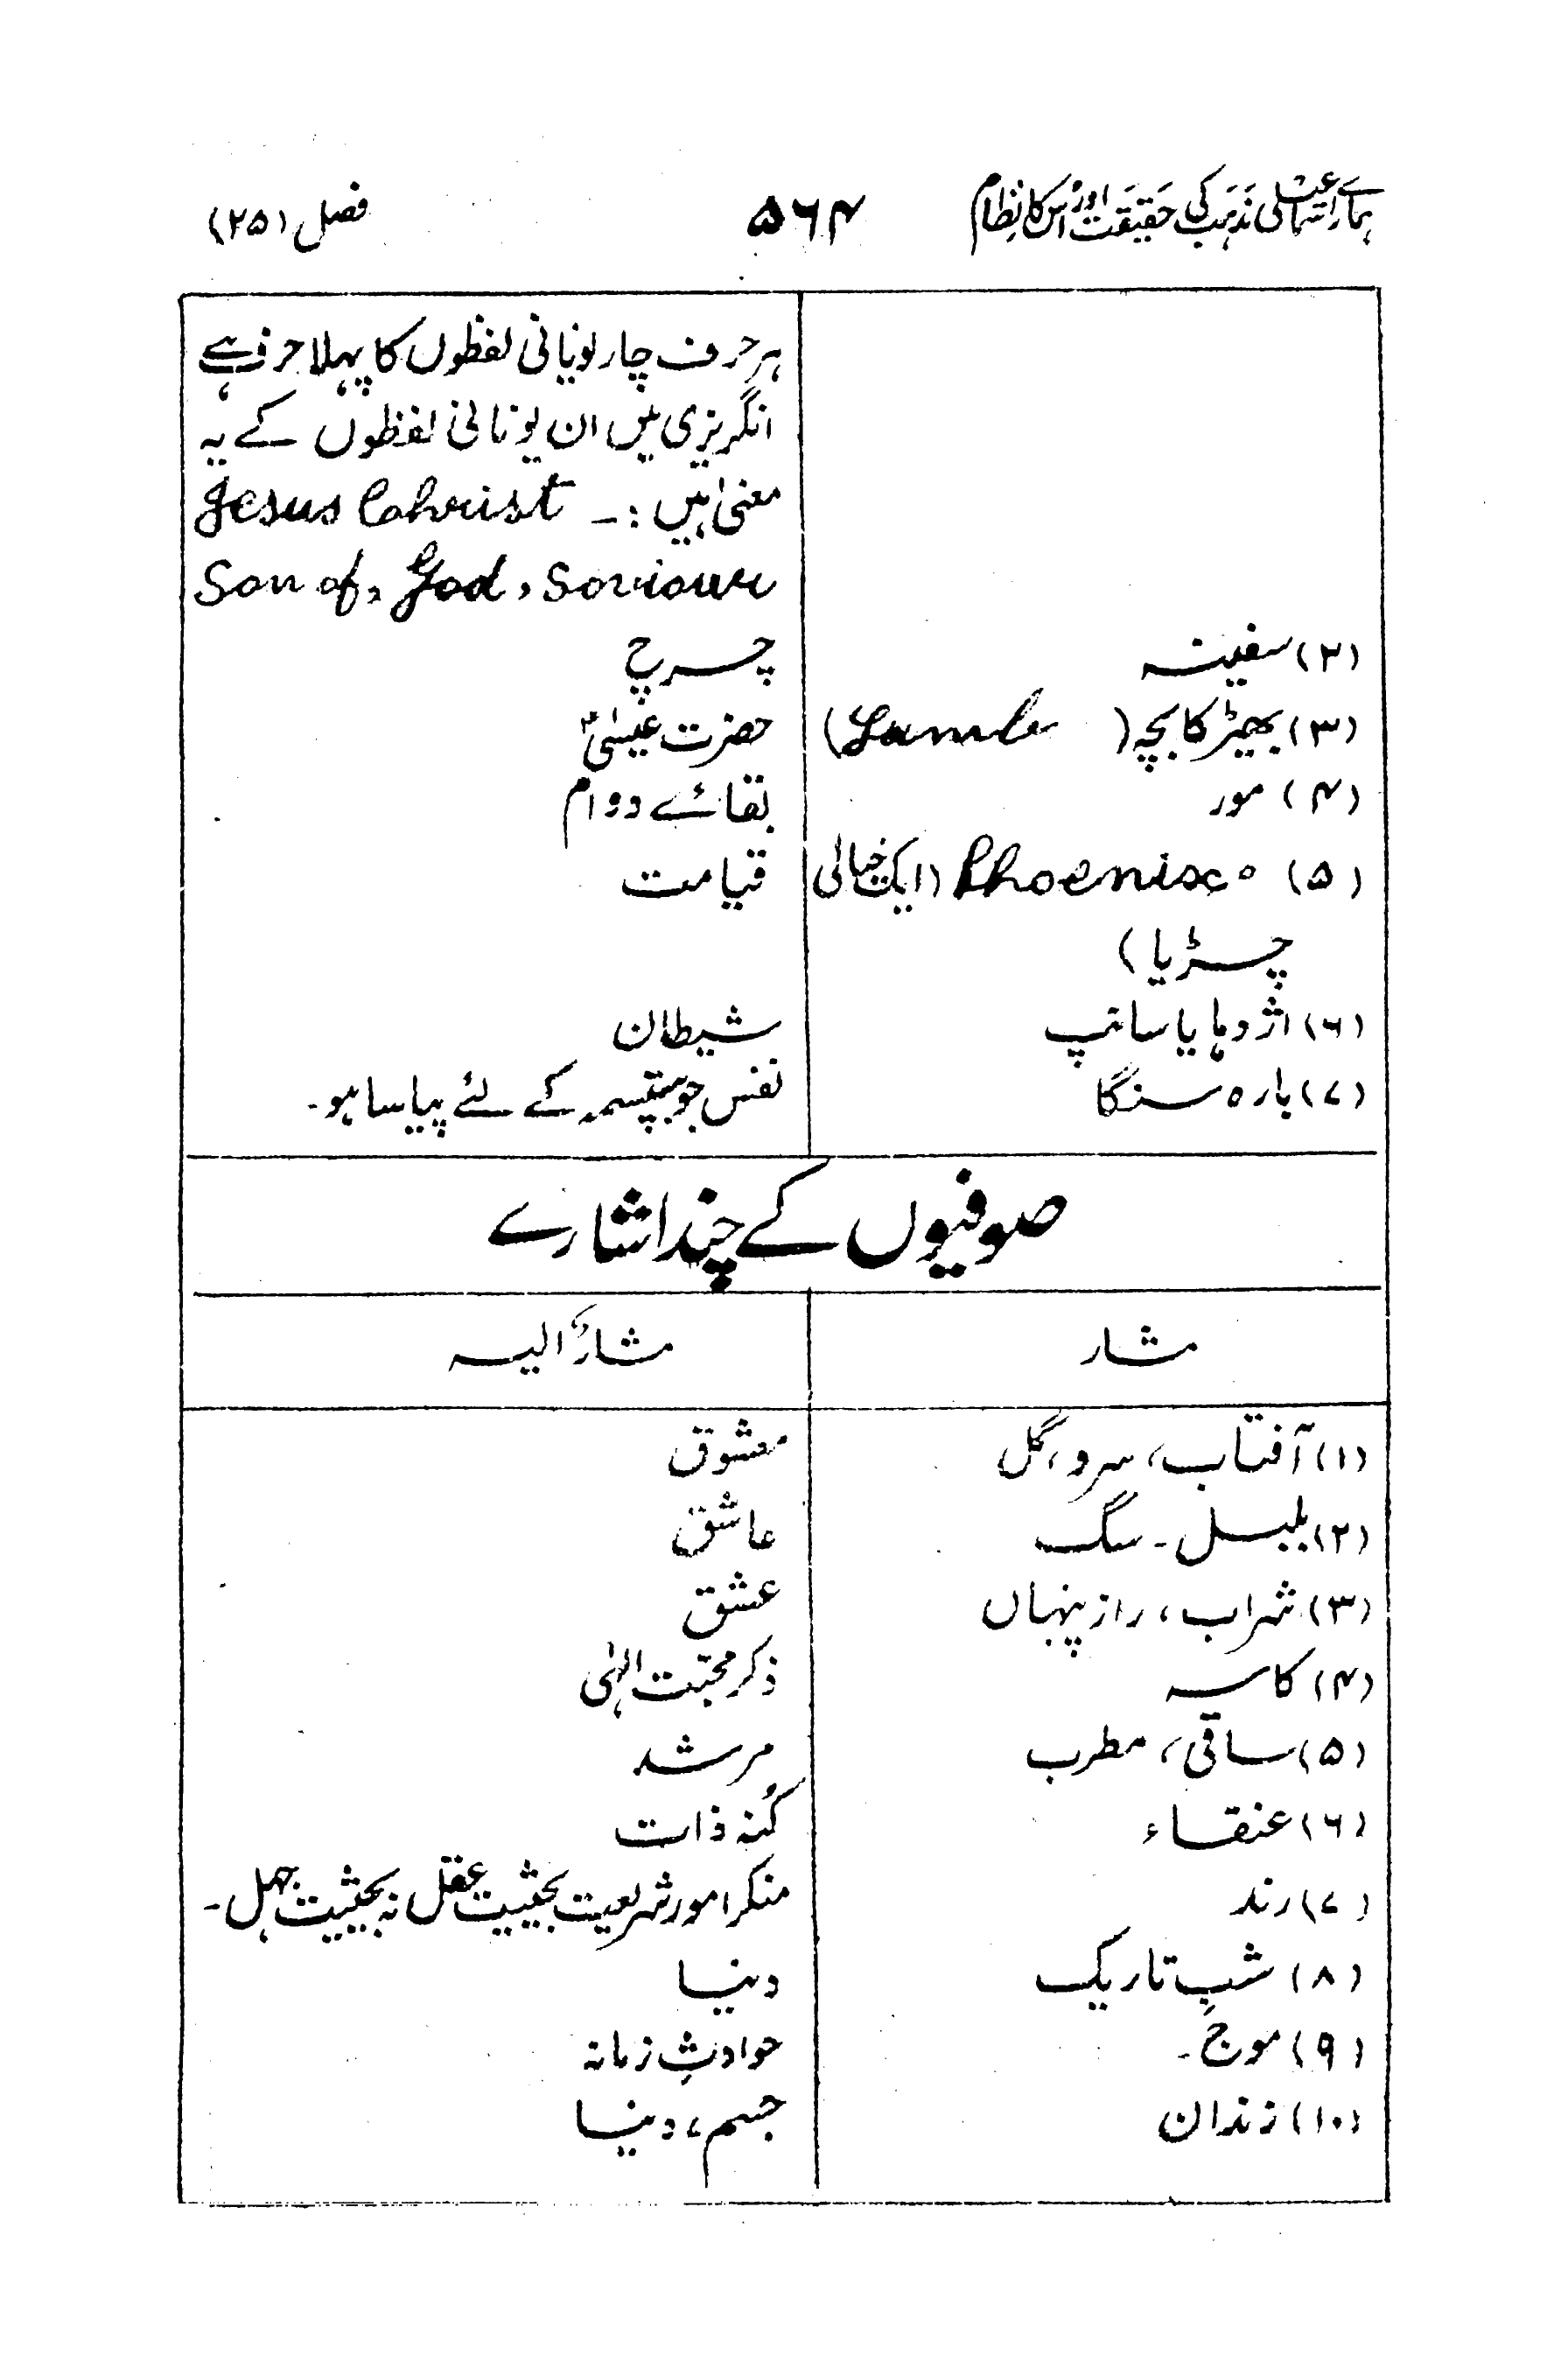 ہمارے اسماعیلی مذہب کی حقیقت اور اس کا نظام ۵۶۴ فصل (۲۵)
ہر حرف چار یونانی لفظوں کا پہلا حرف ہے
انگریزی میں ان یونانی لفظوں کے یہ
معنیٰ ہیں :۔ Jesus Christ
Son of, God, Soviour
(۲) سفینہ چرچ
(۳) بھیڑ کا بچہ (Lamb) حضرت عیسیٰؑ
(۴) مور بقائے دوام
(۵) Phoenix (ایک خیالی قیامت
چڑیا)
(۶) اژدہا یا سانپ شیطان
(۷) بارہ سنگا نفس جو بپتسمہ کے لئے پیاسا ہو۔
صوفیوں کے چند اشارے
مشار مشارٌ الیہ
(۱) آفتاب، سرو، گل معشوق
(۲) بلبل۔ سگ عاشق
(۳) شراب، راز پنہاں عشق
(۴) کاسہ ذکر محبّت الہٰی
(۵) ساقی، مطرب مرشد
(۶) عنقاء کُنہ ذات
(۷) رند منکر امور شریعت بحیثیت عقل نہ بحیثیت جہل۔
(۸) شبِ تاریک دنیا
(۹) موج۔ حوادثِ زمانہ
(۱۰) زندان جسم، دنیا